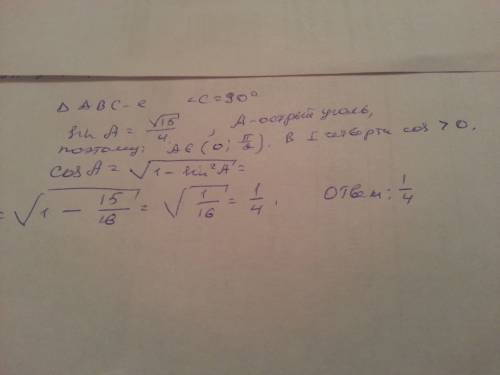 Δ ABC-е ∠C=90°
sin A = √15/4, A-острый угол,
поэтому: A∈(0; π/2). В I четверти cos > 0.
cos A = √(1 - sin²A) =
= √(1 - 15/16) = √(1/16) = 1/4. Ответ: 1/4